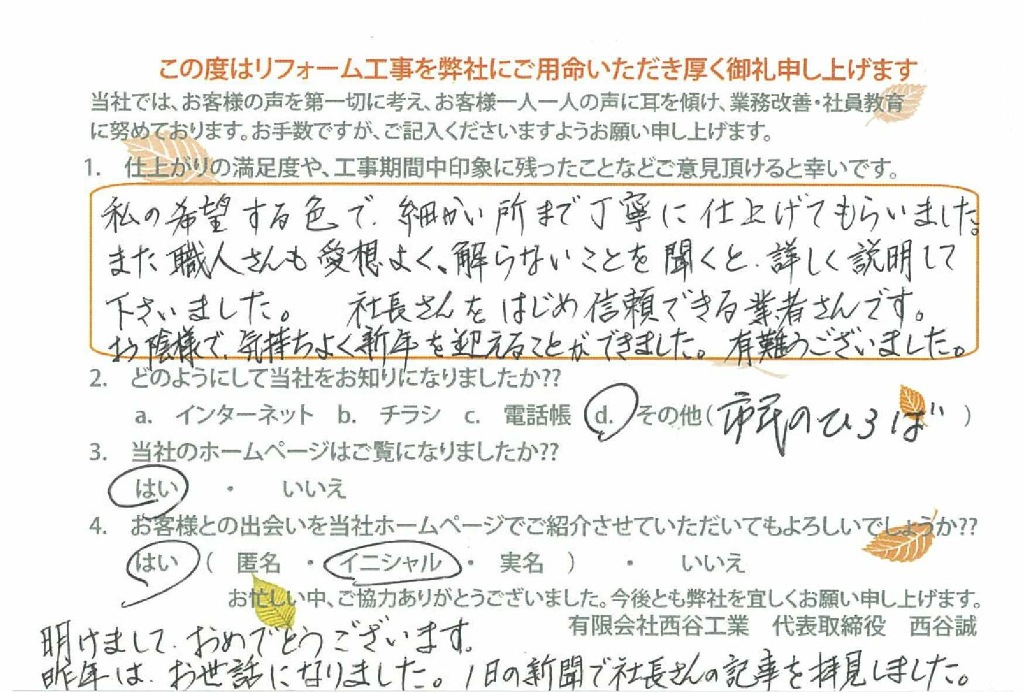 この度はリフォーム工事を弊社にご用命いただき厚く御礼申し上げます
当社では、お客様の声を第一切に考え、お客様一人一人の声に耳を傾け、業務改善・社員教育
に努めております。お手数ですが、ご記入くださいますようお願い申し上げます。
1. 仕上がりの満足度や、工事期間中印象に残ったことなどご意見頂けると幸いです。
私の希望する色で、細かい所まで丁寧に仕上げてもらいました。
また職人さんも愛想よく、解らないことを聞くと、詳しく説明して
下さいました。 社長さんをはじめ信頼できる業者さんです。
お陰様で、気持ちよく新年を迎えることができました。有難うございました。
2. どのようにして当社をお知りになりましたか??
a. インターネット b. チラシ c. 電話帳 d. その他(市民のひろば)
3. 当社のホームページはご覧になりましたか??
はい ・ いいえ
4. お客様との出会いを当社ホームページでご紹介させていただいてもよろしいでしょうか??
はい ( 匿名 ・ イニシャル ・ 実名 ) ・ いいえ
お忙しい中、ご協力ありがとうございました。今後とも弊社を宜しくお願い申し上げます。
有限会社西谷工業 代表取締役 西谷誠
明けまして、おめでとうございます。
昨年は、お世話になりました。1日の新聞で社長さんの記事を拝見しました。